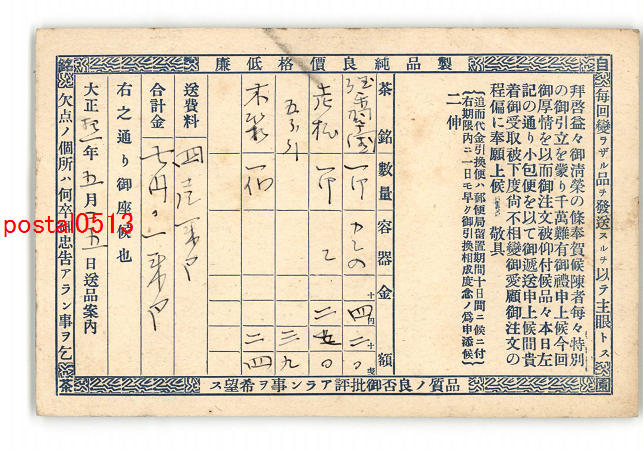 製品純良價格低廉
自園
銘茶
毎回變ラザル品ヲ發送スルヲ以テ主眼トス
拜啓益々御淸榮の條奉賀候陳者毎々特別
の御引立を蒙り千萬難有御禮申上候今回
御厚情を以而御注文被仰付候品々本日左
記の通り小包便を以て御遞送申上候間貴
着御受取被下度尙不相變御愛顧御注文の
程偏に奉願上候 敬具
二伸
追而代金引換便ハ郵便局留置期間十日間ニ候ニ付
右期限内ニ一日モ早ク御引換相成度念ノ爲申添候
茶銘 數量 容器 金額
十 円 十 錢
一斤 四二〇
老松 一斤 〃 二五〇
三九
木袋 一 二四
送費料
合計金
右之通り御座候也
大正 年五月 日送品案内
欠点ノ個所ハ何卒御忠告アラン事ヲ乞
品質ノ良否御批評アラン事ヲ希望ス
postal0513